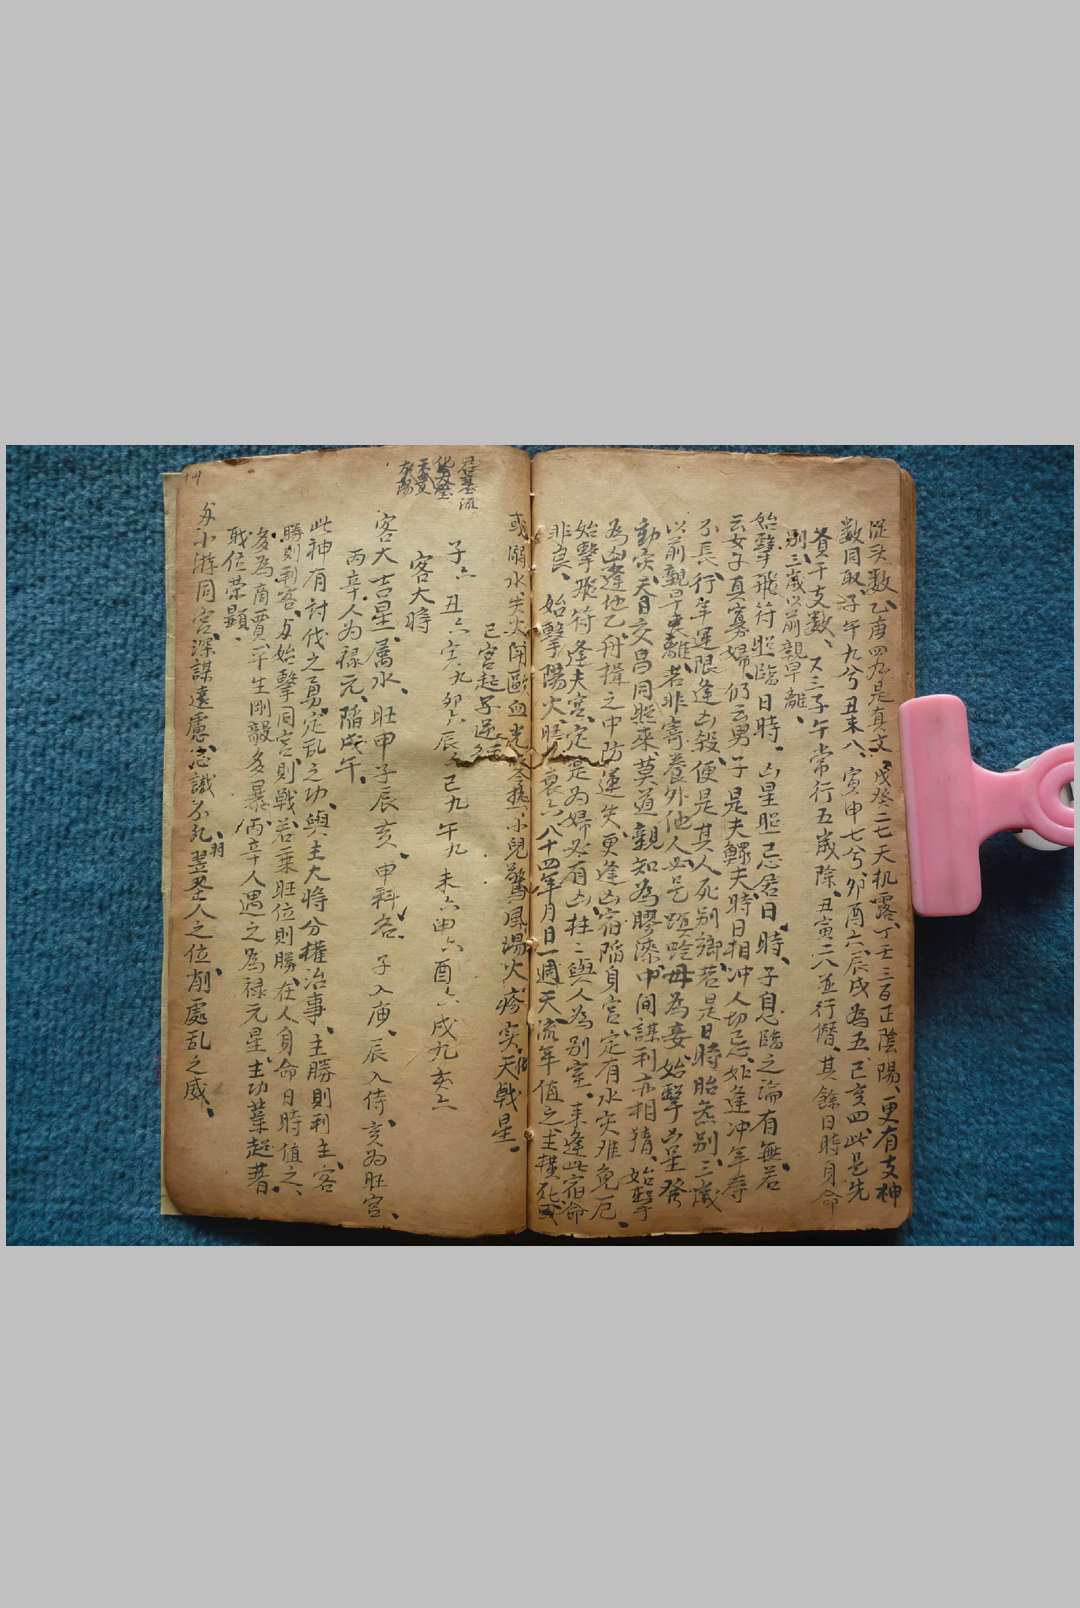 從头数、乙庚四为是真文、戊癸二七天机露、丁壬三百正陰陽、更有支神
数同取、子午九兮丑未八、寅申七兮卯酉六、辰戌為五己亥四、此是先
賁干支数、又三子午常行五歲除、丑寅二八並行僭、其餘日時身命
別、三歲以前親早離、
始擊飛符照臨日時、凶星照忌君日時、子息臨之論有無、若
云女子真寡婦、仍云男子是夫鰥夫、時日相冲人切忌、如逢冲年寿
不長、行年運限逢凶殺、便是其人死别鄉、若是日時胎元别、三歲
以前親早离離、若非寄養外他人、必是母為妾、始擊凶星發
動灾、天目文昌同照來、莫道親知為膠漆、中间謀利亦相猜、始擊
為凶逢地乙、舟揖之中防遗失、更逢凶宿陷身宫、定有水灾难免厄、
始擊飛符逢夫宫、定是為婦必有凶、柱二與人為别室、来逢此宿命
非良、始擊陽火旺衰六八十四年、月日一週天、流年值之主横死或
或溺水失火闭歐血光寒热、小兒驚風湯火疹实天戟星、
己宫起子逆行
子六丑六寅九卯六辰六己九午九未六申六酉六戌九亥六
客大時
客大吉星、属水、旺甲子辰亥、申科名、子入庙、辰入侍、亥为旺宫、
丙辛人为禄元、陷戌午、
此神有討伐之勇、定乱之功、與主大將分權治事、主勝則利主、客
勝則利客、与始擊同宫則戟、若乘旺位則勝、在人身命日時值之、
多為商賈、平生剛毅多暴、丙辛人遇之為禄元星、主功業超著、
职位荣顯、
与小游同宫、深謀遠慮、忘識不凡、翌圣人之位、削處乱之威、